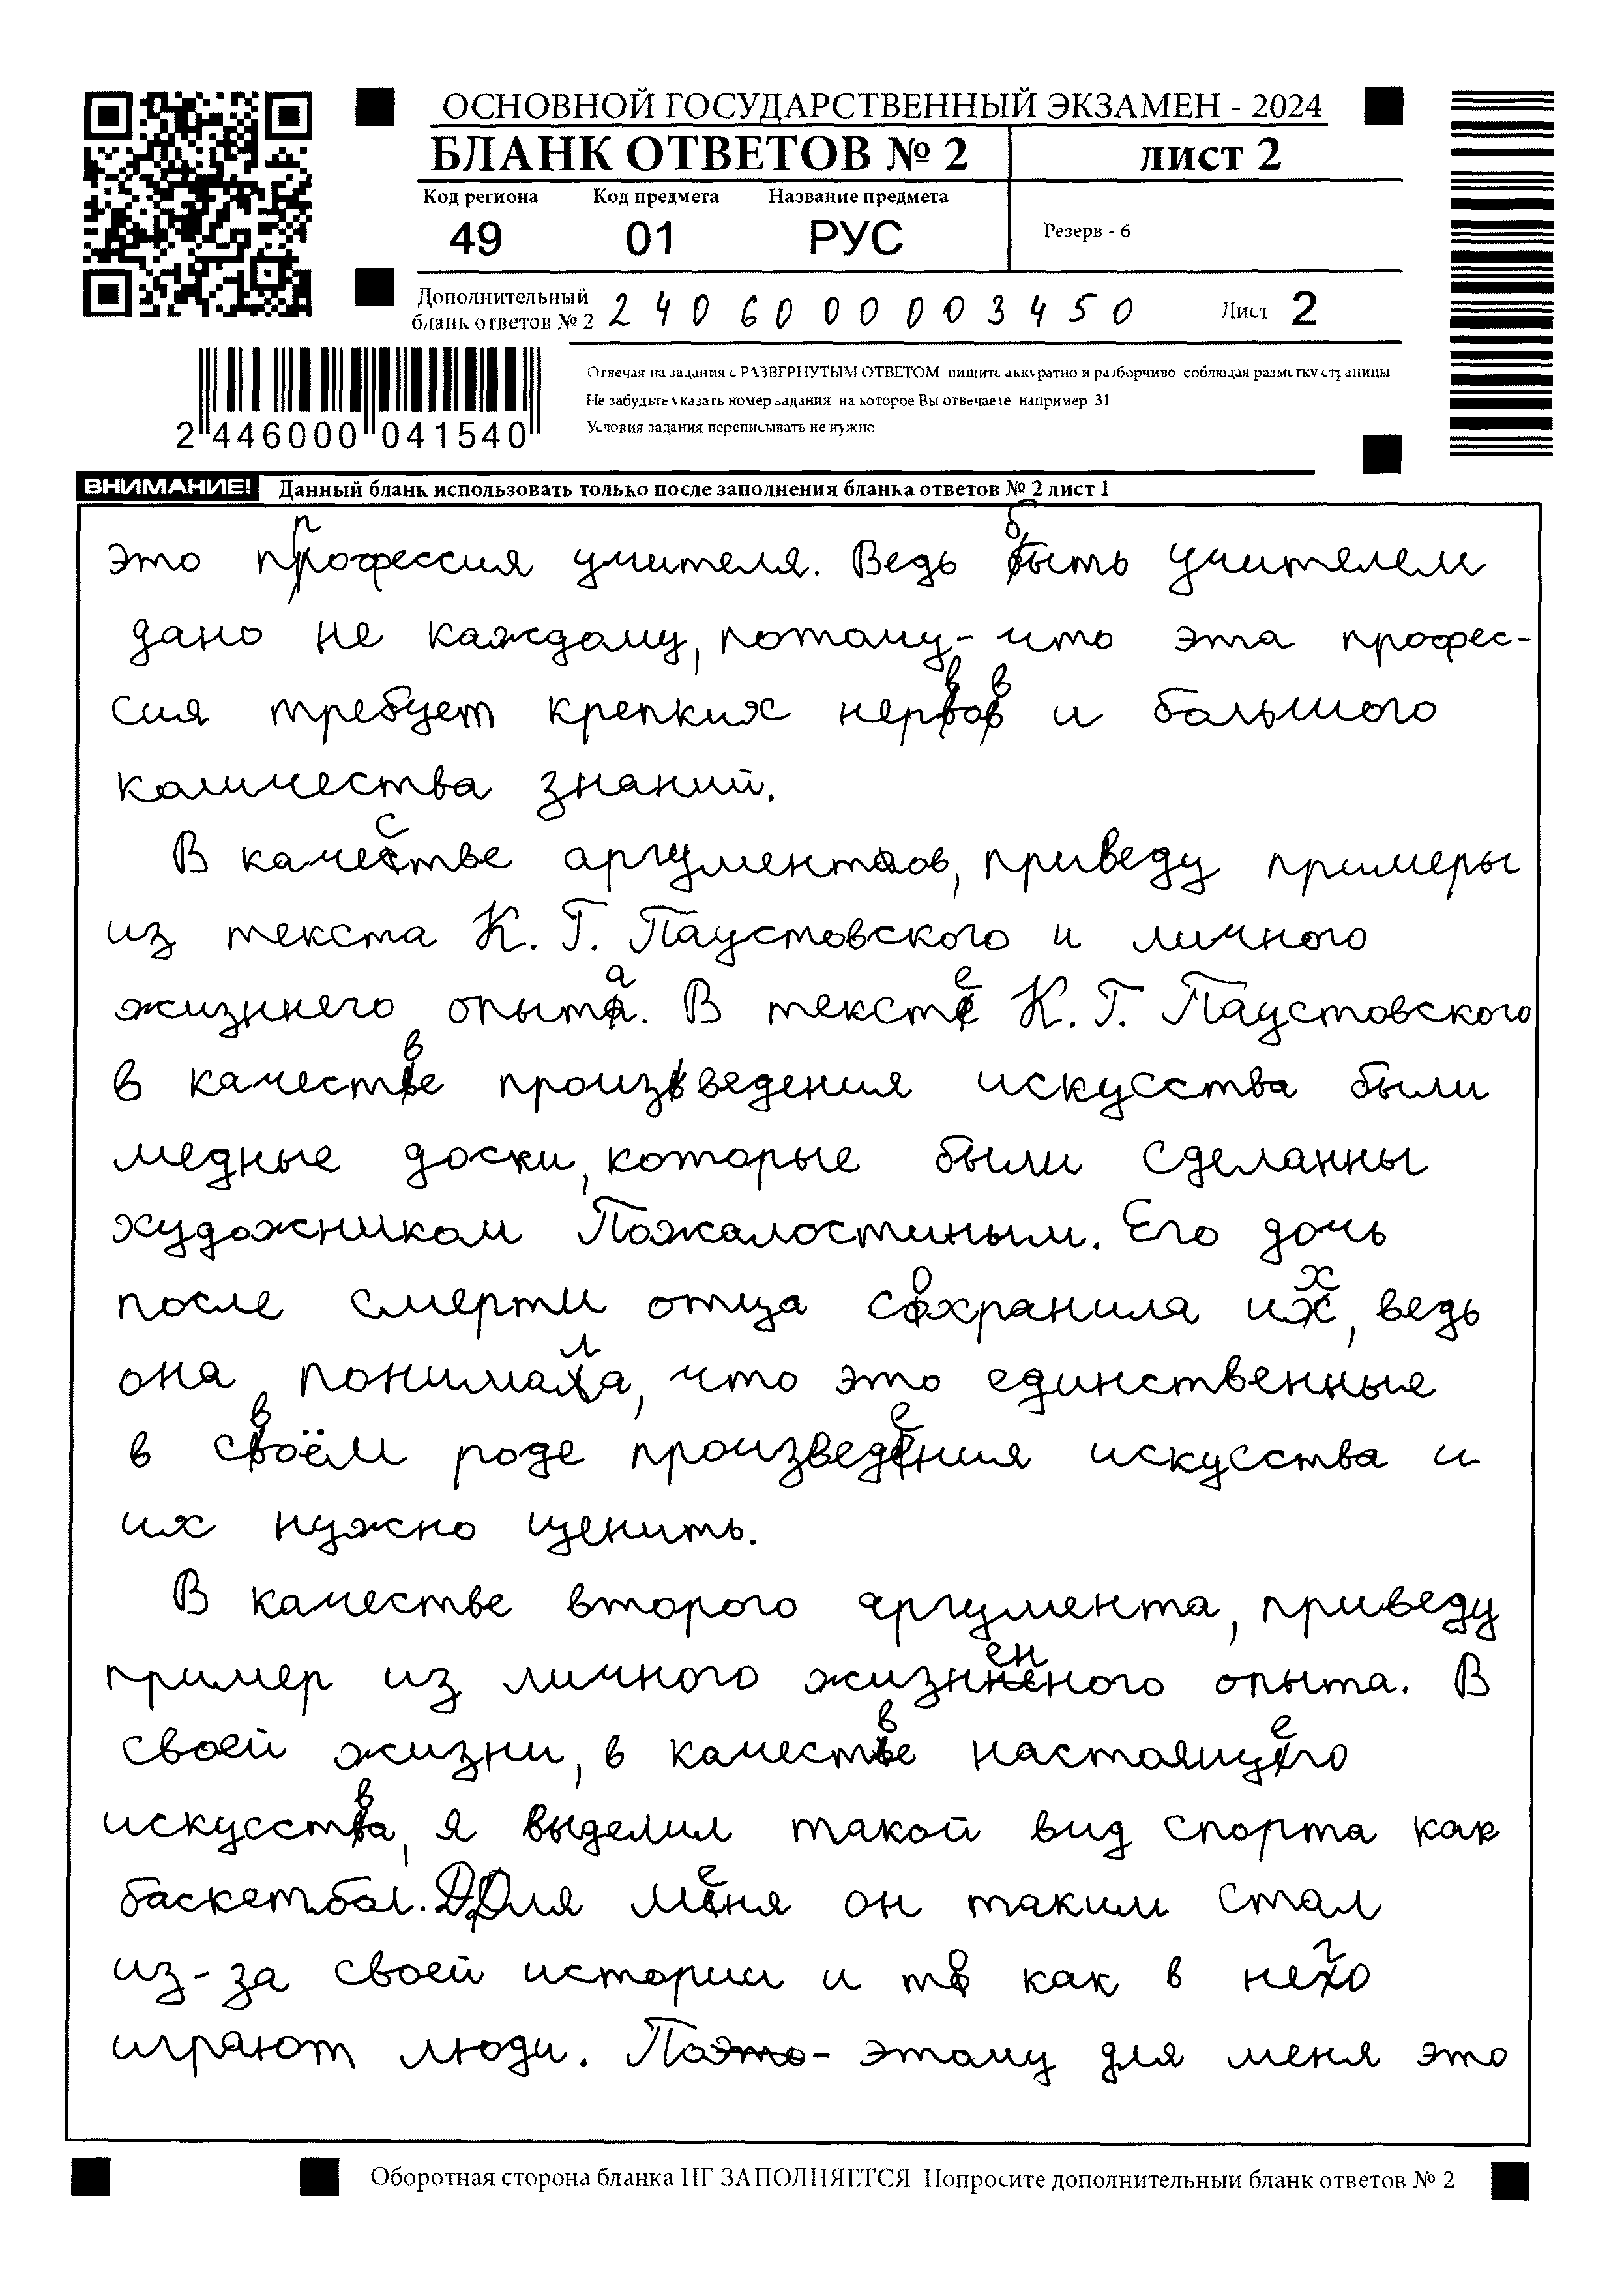 ОСНОВНОЙ ГОСУДАРСТВЕННЫЙ ЭКЗАМЕН - 2024
БЛАНК ОТВЕТОВ № 2
лист 2
Код региона Код предмета Название предмета
49 01 РУС
Резерв - 6
Дополнительный бланк ответов № 2 2406000003450
Лист 2
Отвечая на задания с РАЗВЕРНУТЫМ ОТВЕТОМ пишите аккуратно и разборчиво соблюдая разметку страницы
Не забудьте указать номер задания на которое Вы отвечаете например 31
Условия задания переписывать не нужно
2 446000 041540
ВНИМАНИЕ! Данный бланк использовать только после заполнения бланка ответов № 2 лист 1
это профессия учителя. Ведь быть учителем
дано не каждому, потому-что эта профес-
сия требует крепких нервов и большого
количества знаний.
В качестве аргументов, приведу примеры
из текста К. Г. Паустовского и личного
жизннего опыта. В тексте К. Г. Паустовского
в качестве произведения искусства были
медные доски, которые были сделанны
художником Пожалостиным. Его дочь
после смерти отца сохранила их, ведь
она понимала, что это единственные
в своём роде произведения искусства и
их нужно ценить.
В качестве второго аргумента, приведу
пример из личного жизненного опыта. В
своей жизни, в качестве настоящего
искусства, я выделил такой вид спорта как
баскетбол. Для меня он таким стал
из-за своей истории и то как в него
играют люди. По- этому для меня это
Оборотная сторона бланка НЕ ЗАПОЛНЯЕТСЯ Попросите дополнительный бланк ответов № 2